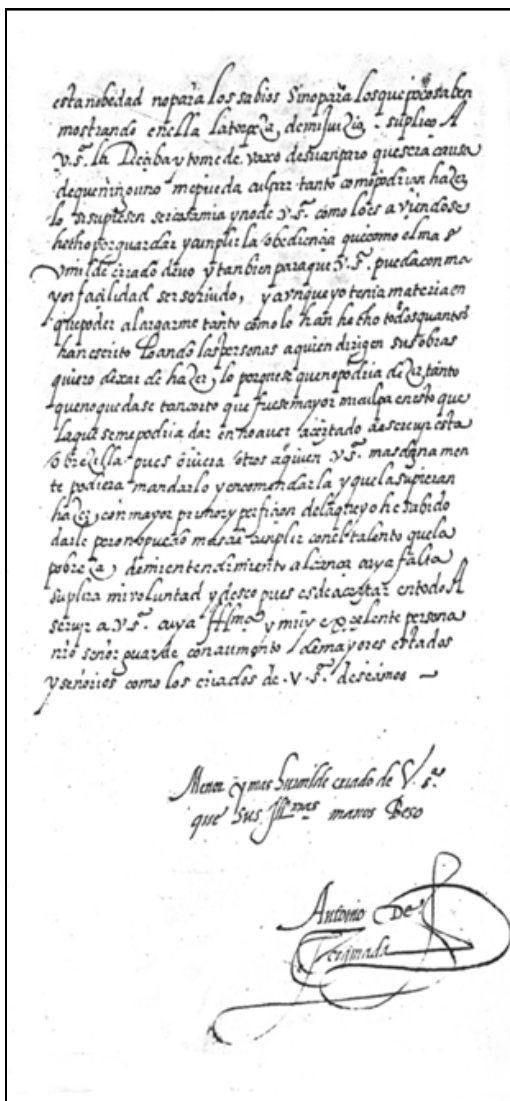 esta nobedad no para los sabios Sino para los que poco saben
mostrando en ella la torpeza de mi Juizio suplico A
v. sª. la Reçiba y tome de vaxo de su anparo que sera causa
de que ninguno me pueda culpar tanto como podrian hazer
lo si supiesen ser cosa mia y no de v. sª. como lo es aviendose
hecho por guardar y cunplir la obediençia que como el mas
vmilde criado devo y tanbien para que v. sª. pueda con ma
yor façilidad ser seruido, y avnque yo tenia materia en
que poder alargarme tanto como lo han hecho todos quantos
han escrito Loando las personas a quien dirigen sus obras
quiero dexar de hazer lo porque se que no podria dezir tanto
que no quedase tan corto que fuese mayor mi culpa en esto que
la que se me podria dar en no aver açertado a escreuir esta
obrezilla pues oviera otros a quien v. sª. mas dignamen
te pudiera mandarlo y encomendarla y que la supieran
hazer con mayor primor y perfiçion de la que yo he sabido
darle pero no puedo mas de cunplir con el talento que la
pobreza de mi entendimiento alcança cuya falta
suplira mi voluntad y deseo pues es de açertar en todo A
seruir a v. sª. cuya Illma. y muy exçelente persona
nro señor guarde con aumento de mayores estados
y señorios como los criados de v. sª. deseamos
Menor y mas humilde criado de V. sª.
que sus Illmas. manos Beso
Antonio De
Torquemada